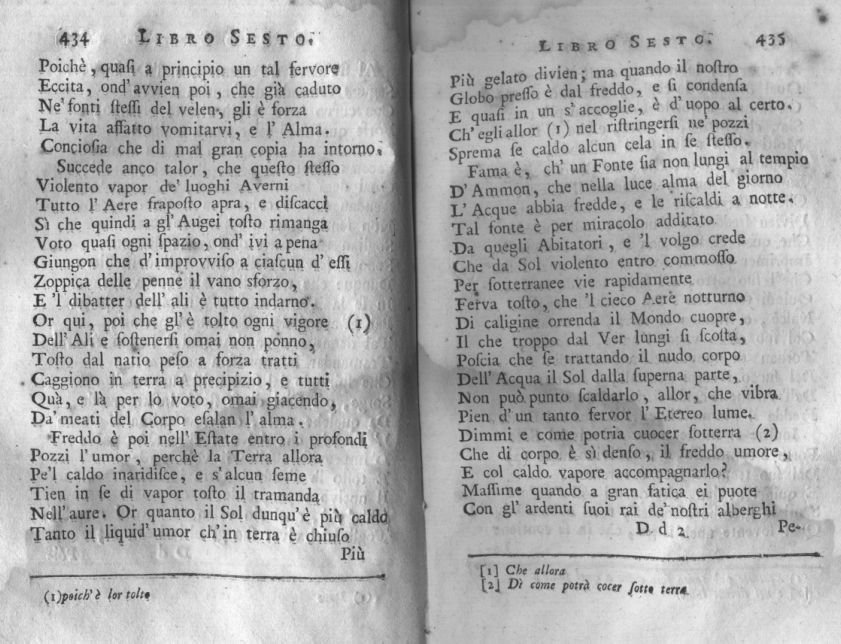 434 LIBRO SESTO.
Poichè, quaſi a principio un tal fervore
Eccita, ond'avvien poi, che già caduto
Ne' fonti ſteſſi del velen, gli è forza
La vita affatto vomitarvi, e l' Alma.
Concioſia che di mal gran copia ha intorno.
Succede anco talor, che queſto ſteſſo
Violento vapor de' luoghi Averni
Tutto l' Aere frapoſto apra, e diſcacci
Sì che quindi a gl' Augei toſto rimanga
Voto quaſi ogni ſpazio, ond' ivi apena
Giungon che d' improvviſo a ciaſcun d' eſſi
Zoppica delle penne il vano sforzo,
E 'l dibatter dell' ali è tutto indarno.
Or qui, poi che gl' è tolto ogni vigore (1)
Dell' Ali e ſoſtenerſi omai non ponno,
Toſto dal natio peſo a forza tratti
Caggiono in terra a precipizio, e tutti
Quà, e là per lo voto, omai giacendo,
Da' meati del Corpo eſalan l' alma.
Freddo è poi nell' Eſtate entro i profondi
Pozzi l' umor, perchè la Terra allora
Pe'l caldo inaridiſce, e s' alcun ſeme
Tien in ſe di vapor toſto il tramanda
Nell' aure. Or quanto il Sol dunqu' è più caldo
Tanto il liquid' umor ch' in terra è chiuſo
Più
(1) poich' è lor tolto
LIBRO SESTO. 435
Più gelato divien; ma quando il noſtro
Globo preſſo è dal freddo, e ſi condenſa
E quaſi in un s' accoglie, è d' uopo al certo.
Ch' egli allor (1) nel riſtringerſi ne' pozzi
Sprema ſe caldo alcun cela in ſe ſteſſo.
Fama è, ch' un Fonte ſia non lungi al tempio
D' Ammon, che nella luce alma del giorno
L' Acque abbia fredde, e le riſcaldi a notte.
Tal fonte è per miracolo additato
Da quegli Abitatori, e 'l volgo crede
Che da Sol violento entro commoſſo
Per ſotterranee vie rapidamente
Ferva toſto, che 'l cieco Aere notturno
Di caligine orrenda il Mondo cuopre,
Il che troppo dal Ver lungi ſi ſcoſta,
Poſcia che ſe trattando il nudo corpo
Dell' Acqua il Sol dalla ſuperna parte,
Non può punto ſcaldarlo, allor, che vibra
Pien d' un tanto fervor l' Etereo lume.
Dimmi e come potria cuocer ſotterra (2)
Che di corpo è sì denſo, il freddo umore,
E col caldo vapore accompagnarlo?
Maſſime quando a gran fatica ei puote
Con gl' ardenti ſuoi rai de' noſtri alberghi
D d 2 Pe-
[1] Che allora
[2] Di come potrà cocer ſotto terra